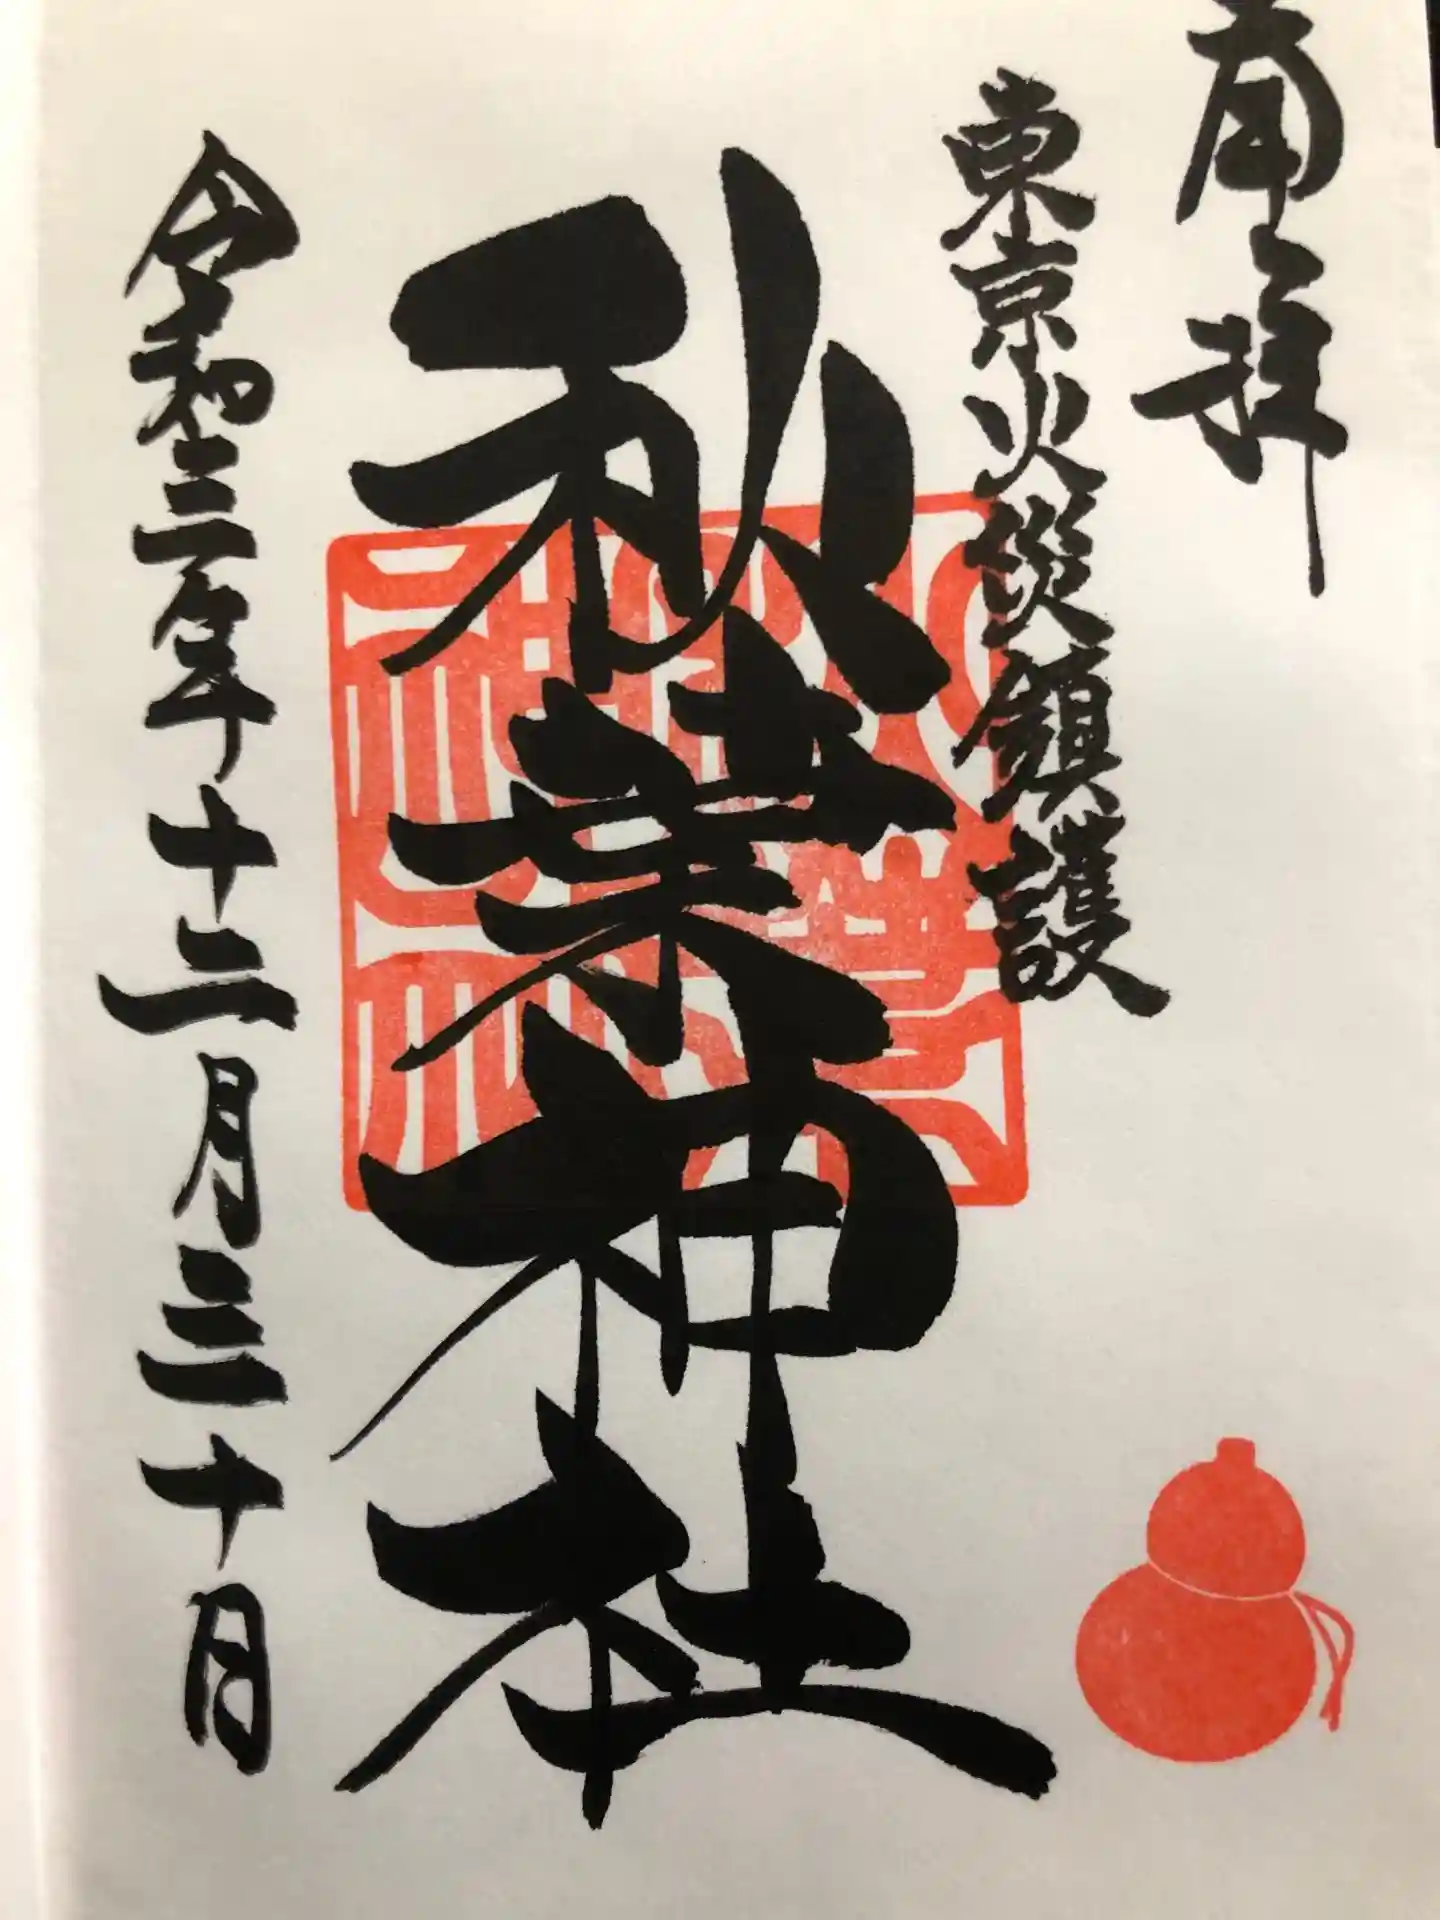 奉拝
東京火災鎮護
秋葉神社
令和三年十二月三十日